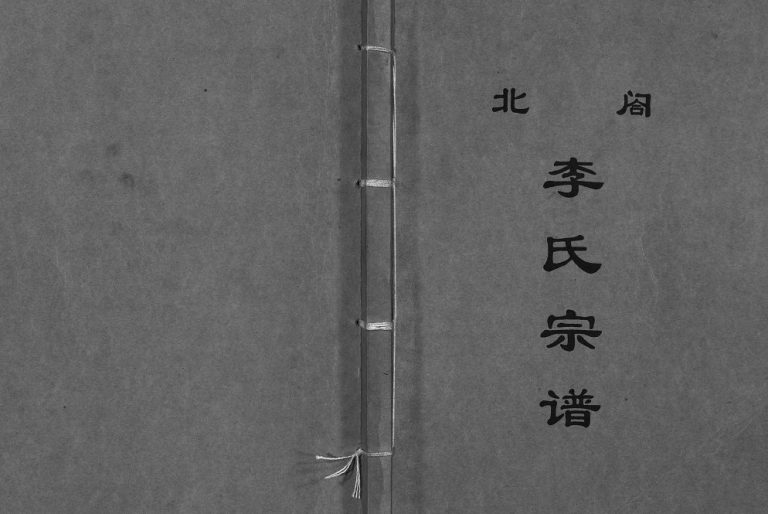 北阁
李氏宗谱